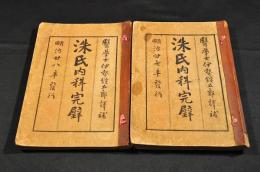 醫學士伊勢錠五郎譯補
洙氏内科完璧
明治廿八年發行
醫學士伊勢錠五郎譯補
洙氏内科完璧
明治廿七年發行